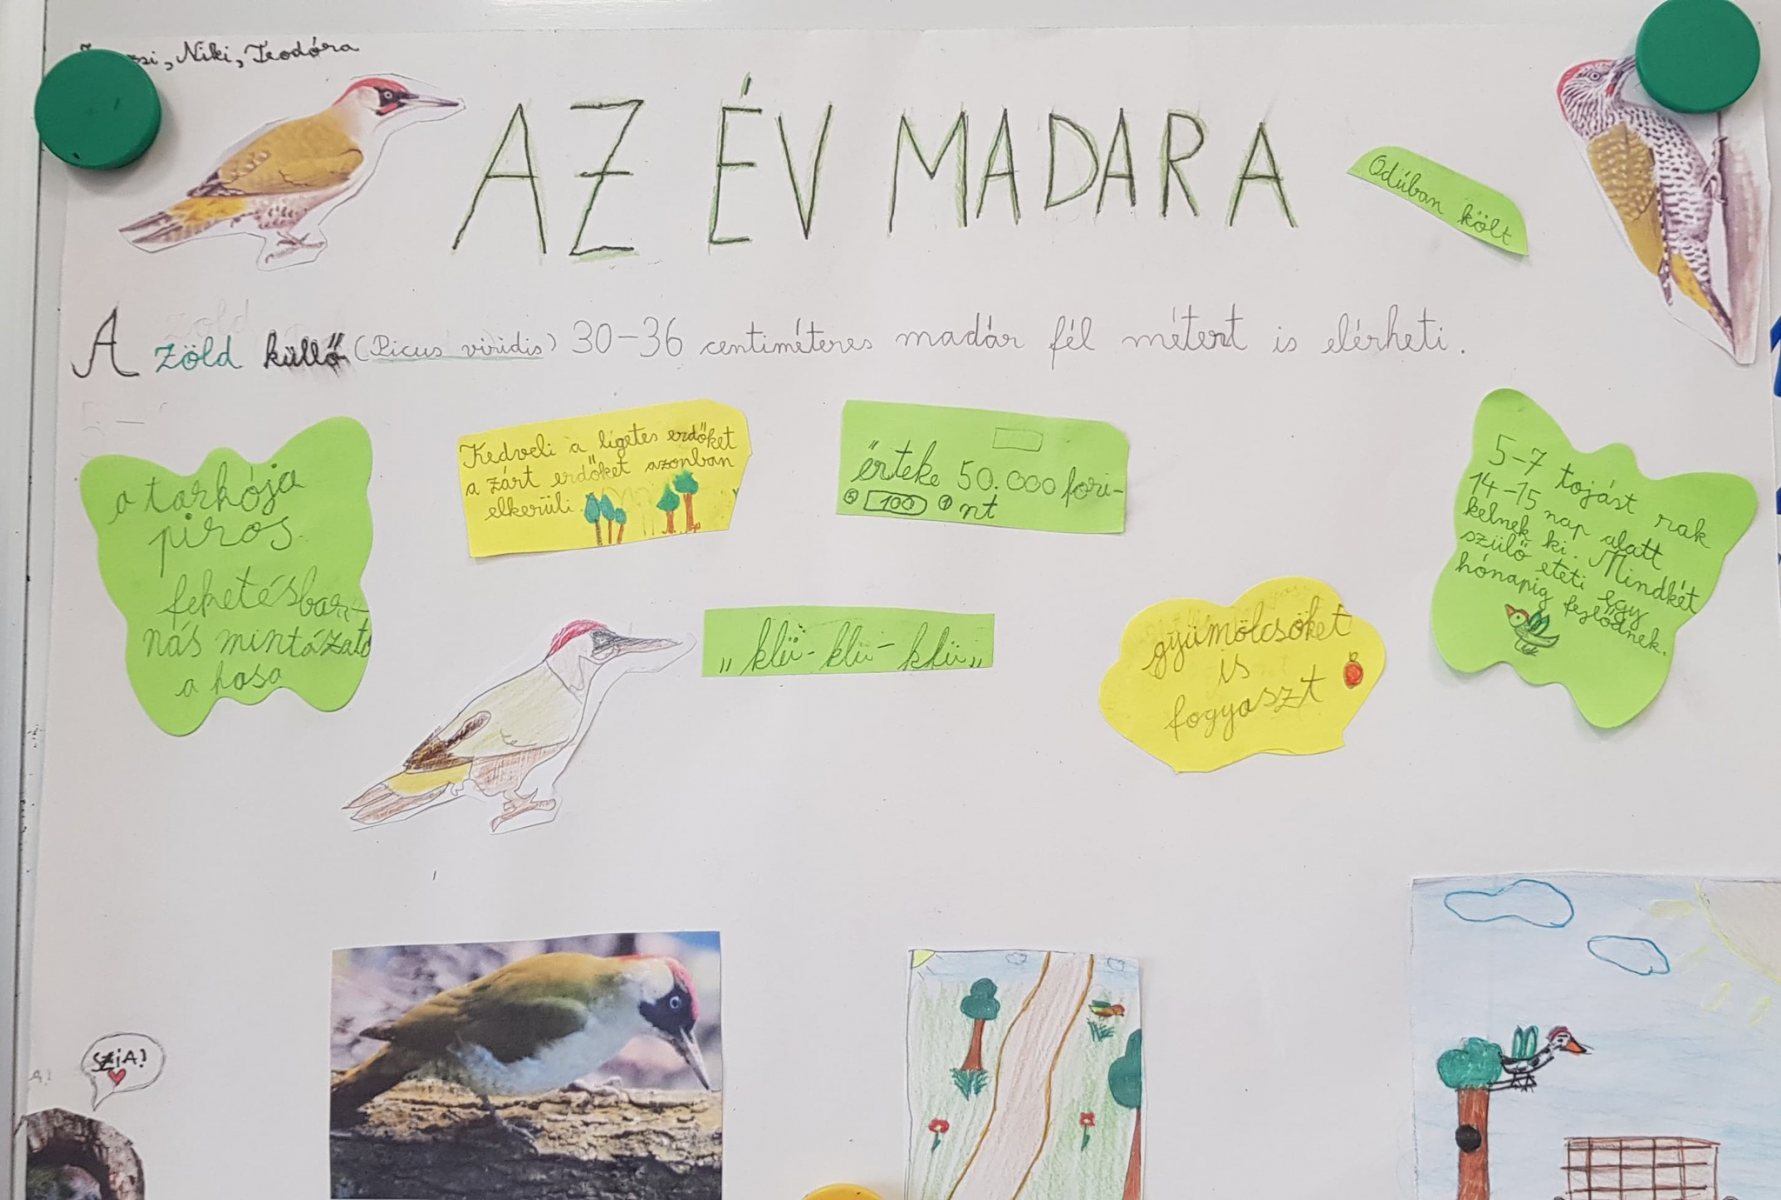 Niki, Teodóra
AZ ÉV MADARA
Odúban költ
A zöld küllő (Picus viridis) 30-36 centiméteres madár fél métert is elérheti.
a tarkója
piros
feketésbar-
nás mintázatú
a hasa
Kedveli a ligetes erdőket
a zárt erdőket azonban
elkerüli
értéke 50.000 fori-
100 nt
5-7 tojást rak
14-15 nap alatt
kelnek ki. Mindkét
szülő eteti egy
hónapig fejlődnek.
„klü-klü-klü„
gyümölcsöket
is
fogyaszt
SZIA!